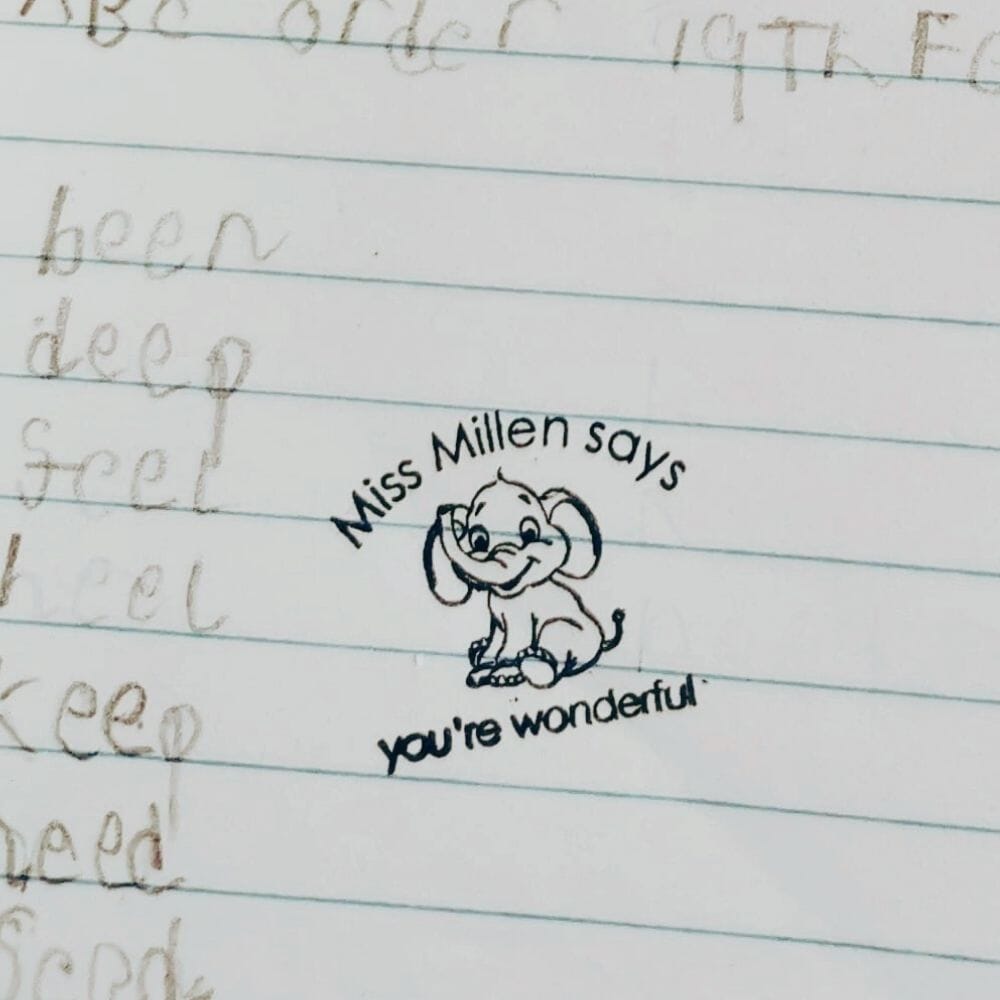 ABC order 19Th Fe
been
deep
feel
heel
Miss Millen says
you're wonderful
keep
need
Seed